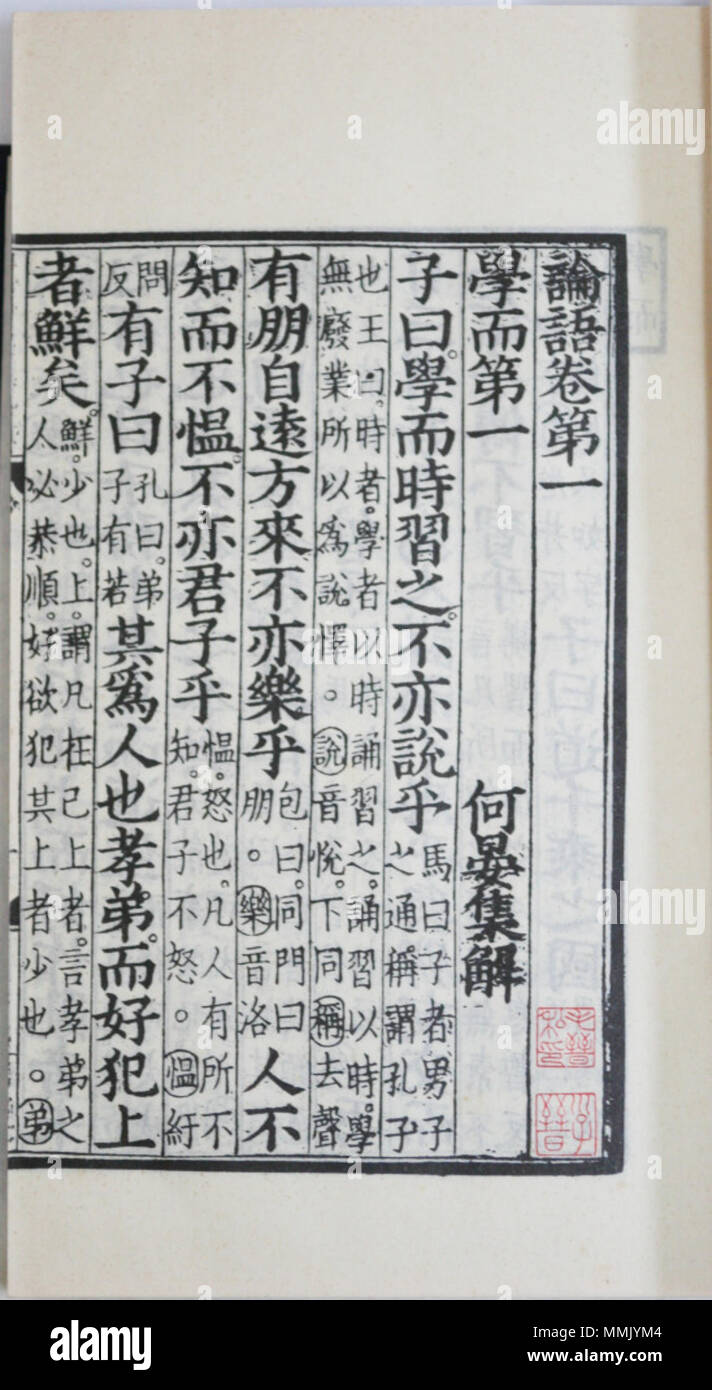 論語卷第一
學而第一 何晏集解
子曰。學而時習之。不亦說乎 馬曰子者男子之通稱。謂孔子
也王曰。時者。學者以時誦習之。誦習以時。學無廢業所以爲說懌。說音悅。下同稱去聲
有朋自遠方來不亦樂乎 包曰。同門曰朋。樂音洛 人不
知而不愠。不亦君子乎 愠。怒也。凡人有所不知。君子不怒。愠紆
問反 有子曰 孔曰。弟子有若 其爲人也孝弟。而好犯上
者鮮矣。鮮。少也。上。謂凡在己上者。言孝弟之人必恭順。好欲犯其上者少也。弟
毛晉私印
子晉
alamy
alamy
Image ID: MMJYM4
www.alamy.com